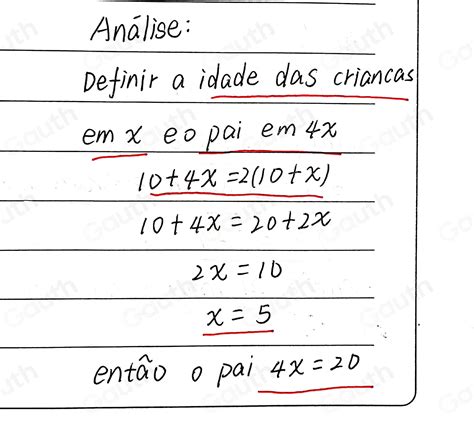 Análise:
Definir a idade das criancas
em x e o pai em 4x
10+4x=2(10+x)
10+4x=20+2x
2x=10
x=5
então o pai 4x=20